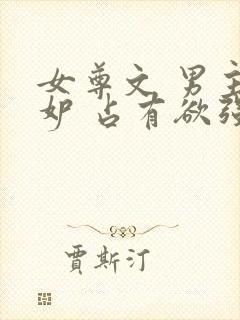 女尊文 男主
妒 占有欲强
贾斯汀